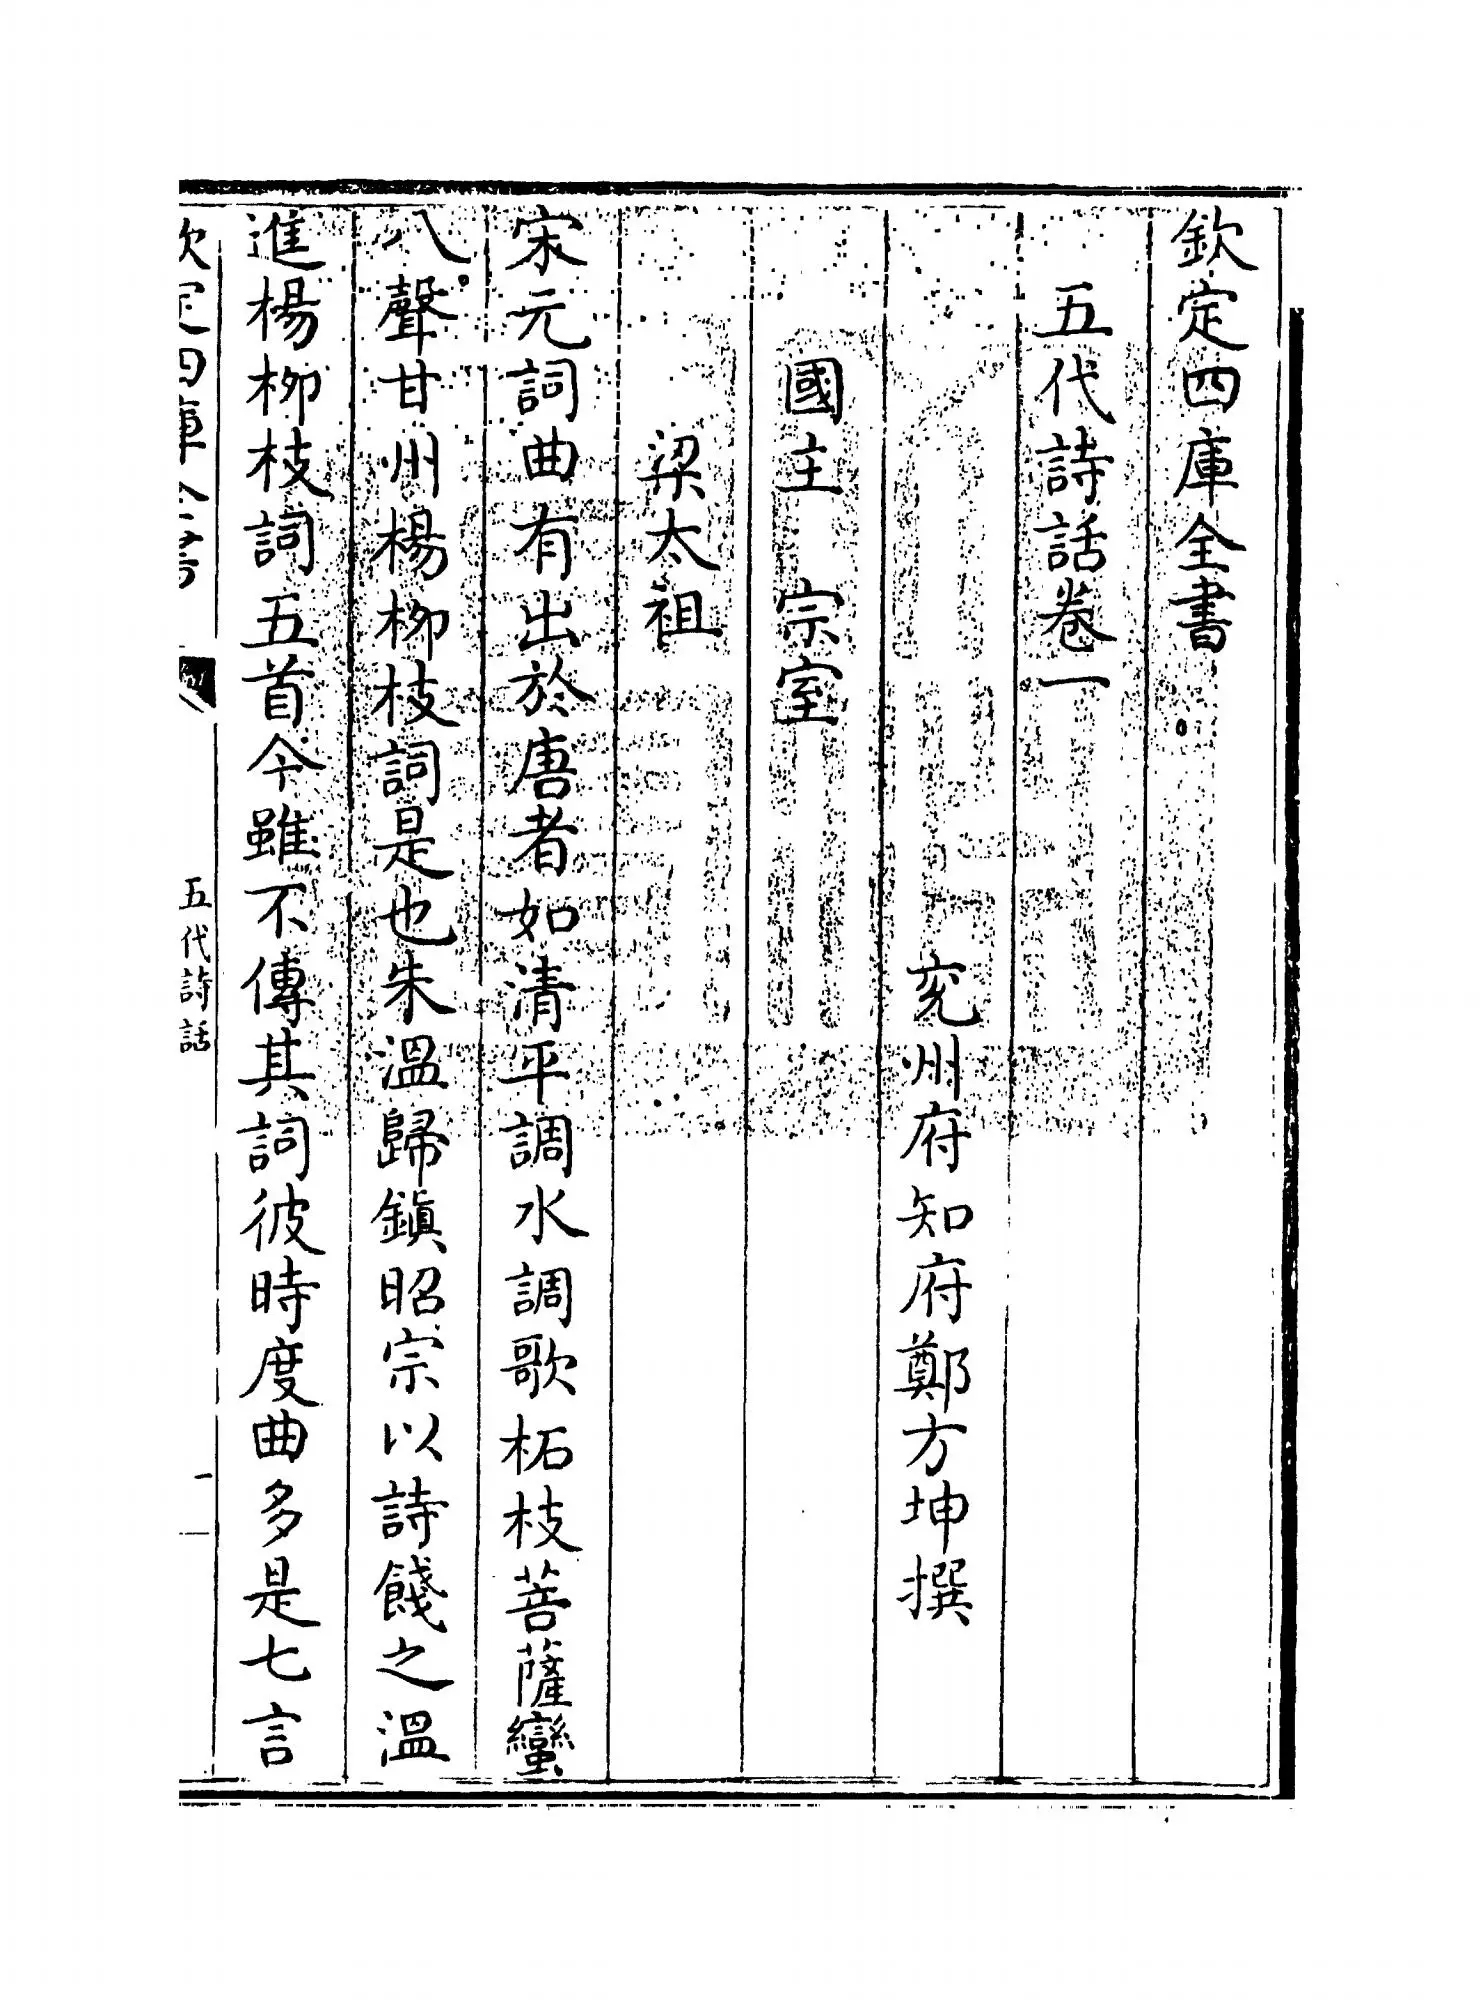 欽定四庫全書
五代詩話卷一
兖州府知府鄭方坤撰
國主　宗室
梁太祖
宋元詞曲有出於唐者如清平調水調歌柘枝菩薩蠻
八聲甘州楊柳枝詞是也朱溫歸鎮昭宗以詩餞之溫
進楊柳枝詞五首今雖不傳其詞彼時度曲多是七言
欽定四庫全書
五代詩話
一